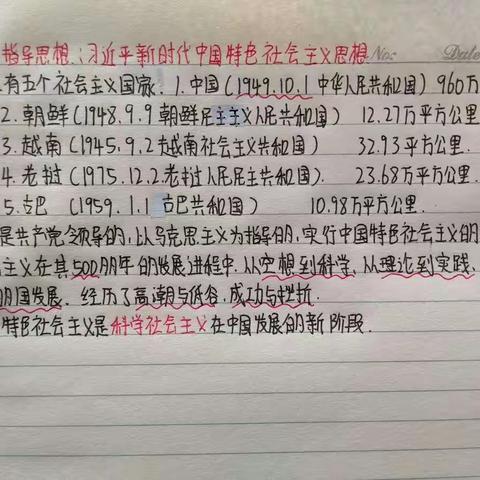 指导思想:习近平新时代中国特色社会主义思想 No: Date
有五个社会主义国家. 1.中国(1949.10.1 中华人民共和国) 960万
2.朝鲜(1948.9.9 朝鲜民主主义人民共和国) 12.27万平方公里
3.越南(1945.9.2 越南社会主义共和国) 32.93平方公里.
4.老挝(1975.12.2 老挝人民民主共和国). 23.68万平方公里.
5.古巴 (1959.1.1 古巴共和国) 10.98万平方公里.
是共产党领导的,以马克思主义为指导的,实行中国特色社会主义的
主义在其500多年的发展进程中,从空想到科学、从理论到实践,
国发展.经历了高潮与低谷,成功与挫折.
特色社会主义是科学社会主义在中国发展的新阶段.